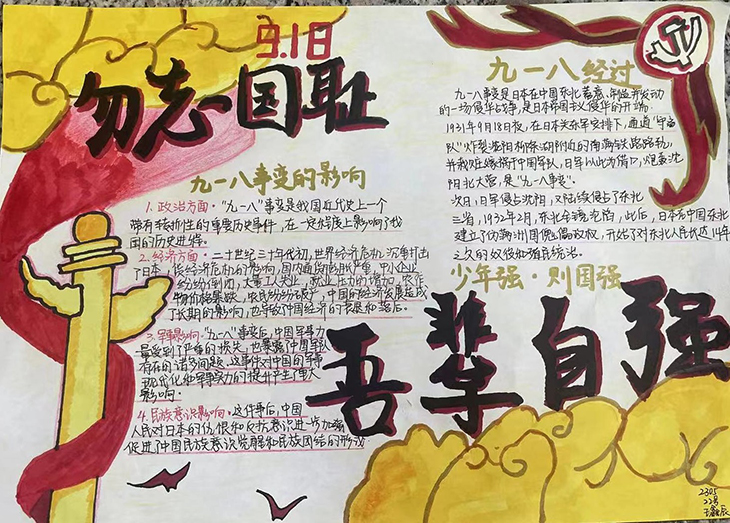 9.18
勿忘国耻
九一八事变的影响
1. 政治方面·“九一八”事变是我国近代史上一个
带有转折性的重要历史事件,在一定程度上影响了我
国的历史进程。
2. 经济方面·二十世纪三十年代初,世界经济危机 沉重打击
了日本,
经济危机的影响,国内通货膨胀严重,中小企业
纷纷倒闭,大量工人失业,就业压力的增加,农作
物价格暴跌,农民纷纷破产,中国的经济发展造成
了长期的影响,也导致中国经济的衰退和落后。
3. 军事影响·“九一八”事变后,中国军事力
量受到了严重的损失,也暴露了中国军队
存有的诸多问题,这事件对中国的军事
现代化和军事实力的提升产生了重大
影响。
4. 民族意识影响,这件事后,中国
人民对日本的仇恨和反抗意识进一步加强
促进了中国民族意识觉醒和民族团结的形成
九一八经过
九一八事变是日本在中国东北蓄意制造并发动
的一场侵华战争,是日本帝国主义侵华的开端
1931年9月18日夜,在日本关东军安排下,
队”炸毁沈阳柳条湖附近的南满铁路路轨,
并栽赃嫁祸于中国军队,日军以此为借口,炮轰沈
阳北大营,是“九一八事变”。
次日,日军侵占沈阳,又陆续侵占了东北
三省,1932年2月,东北全境沦陷,此后,日本在中国东北
建立了伪满洲国傀儡政权,开始了对东北人民长达14年
之久的奴役和殖民统治。
少年强·则国强
吾辈自强
2305
22号